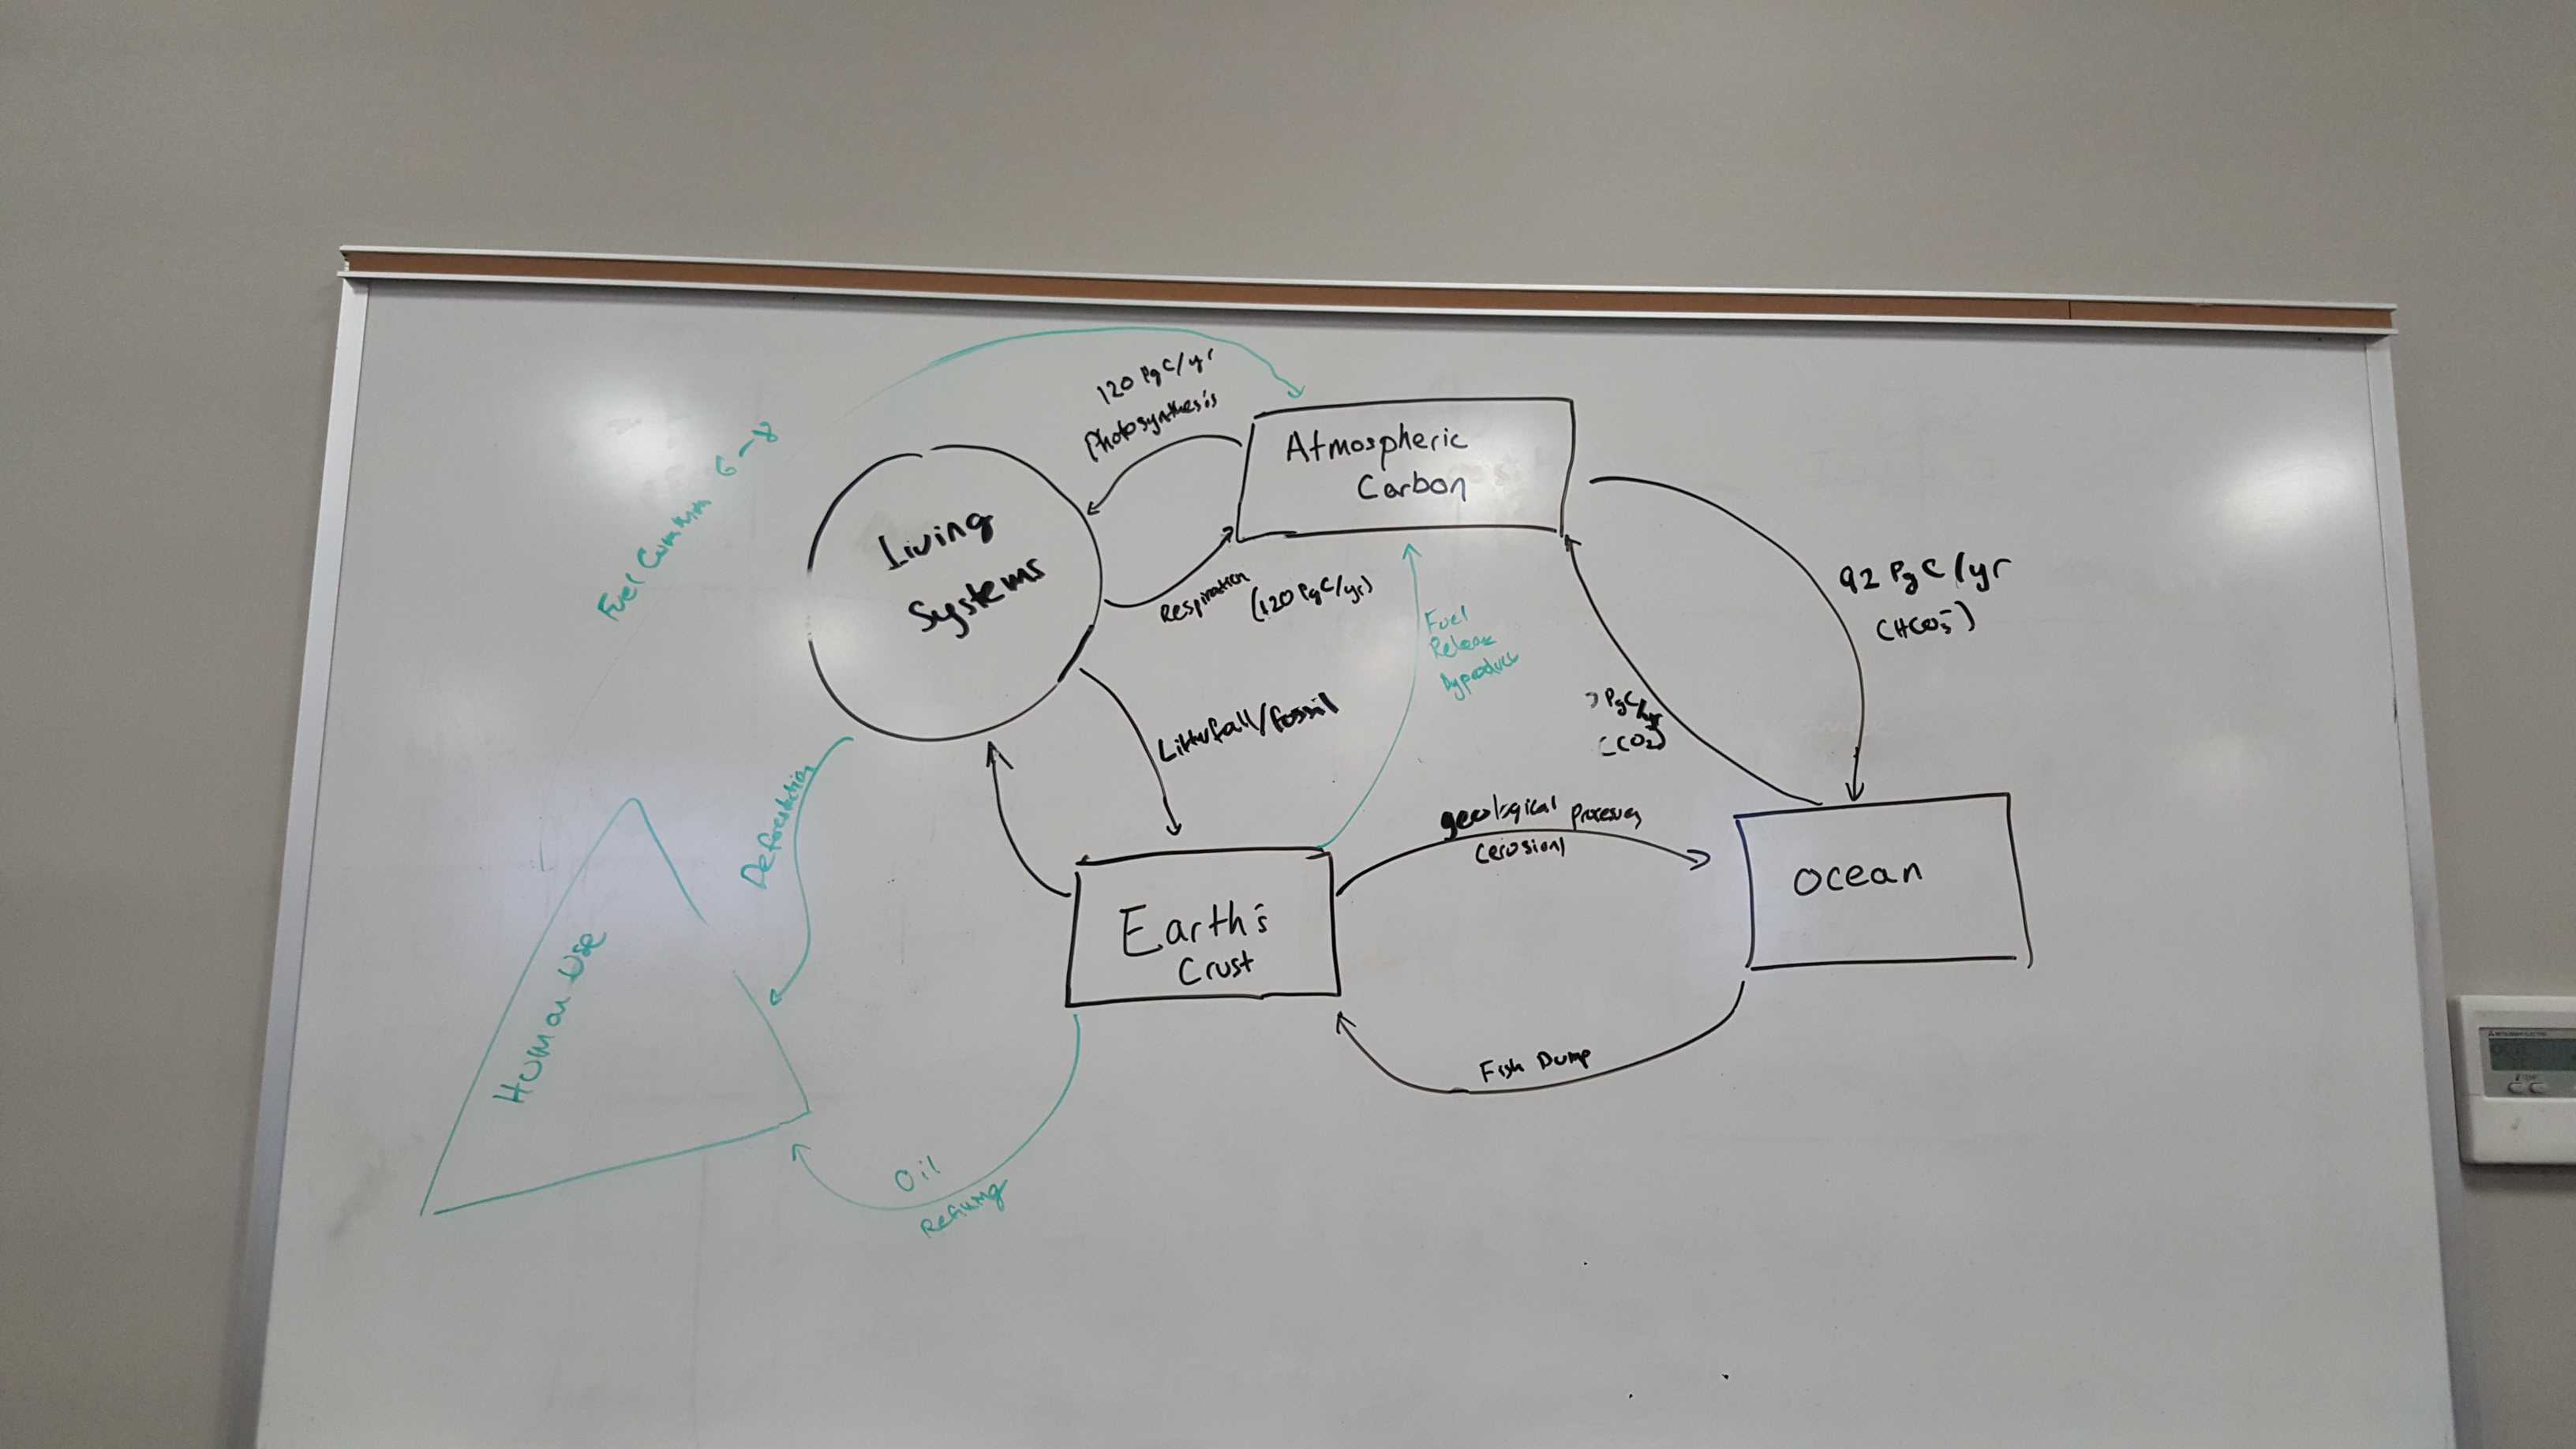 120 PgC/yr
Photosynthesis
Atmospheric
Carbon
Fuel 6-8
Living
Systems
Respiration (120 PgC/yr)
92 PgC/yr
(HCO3-)
Fuel
Release
PgC/yr
(CO2)
Litterfall/fossil
Deforestation
geological processes
(erosion)
Ocean
Earth's
Crust
Human Use
Fish Dump
Oil
Refining